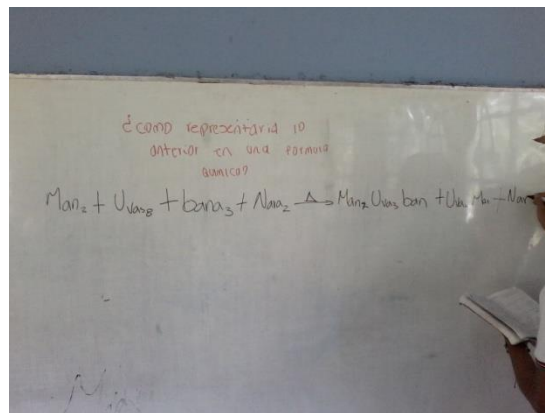 ¿como representaria lo
anterior en una formula
quimica?
Man₂ + Uvas₈ + bana₃ + Nara₂ —Δ→ Man₂ Uva₃ ban + Uva Man + Nar